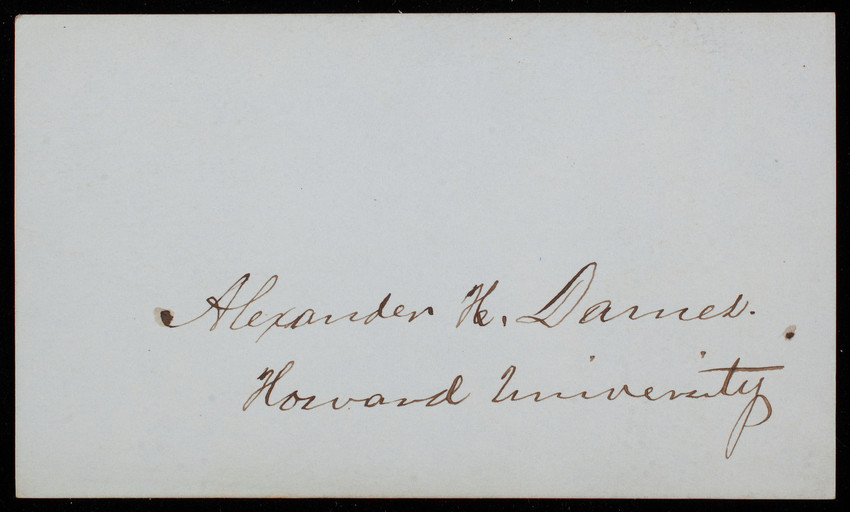 Alexander H. Darnes.
Howard University